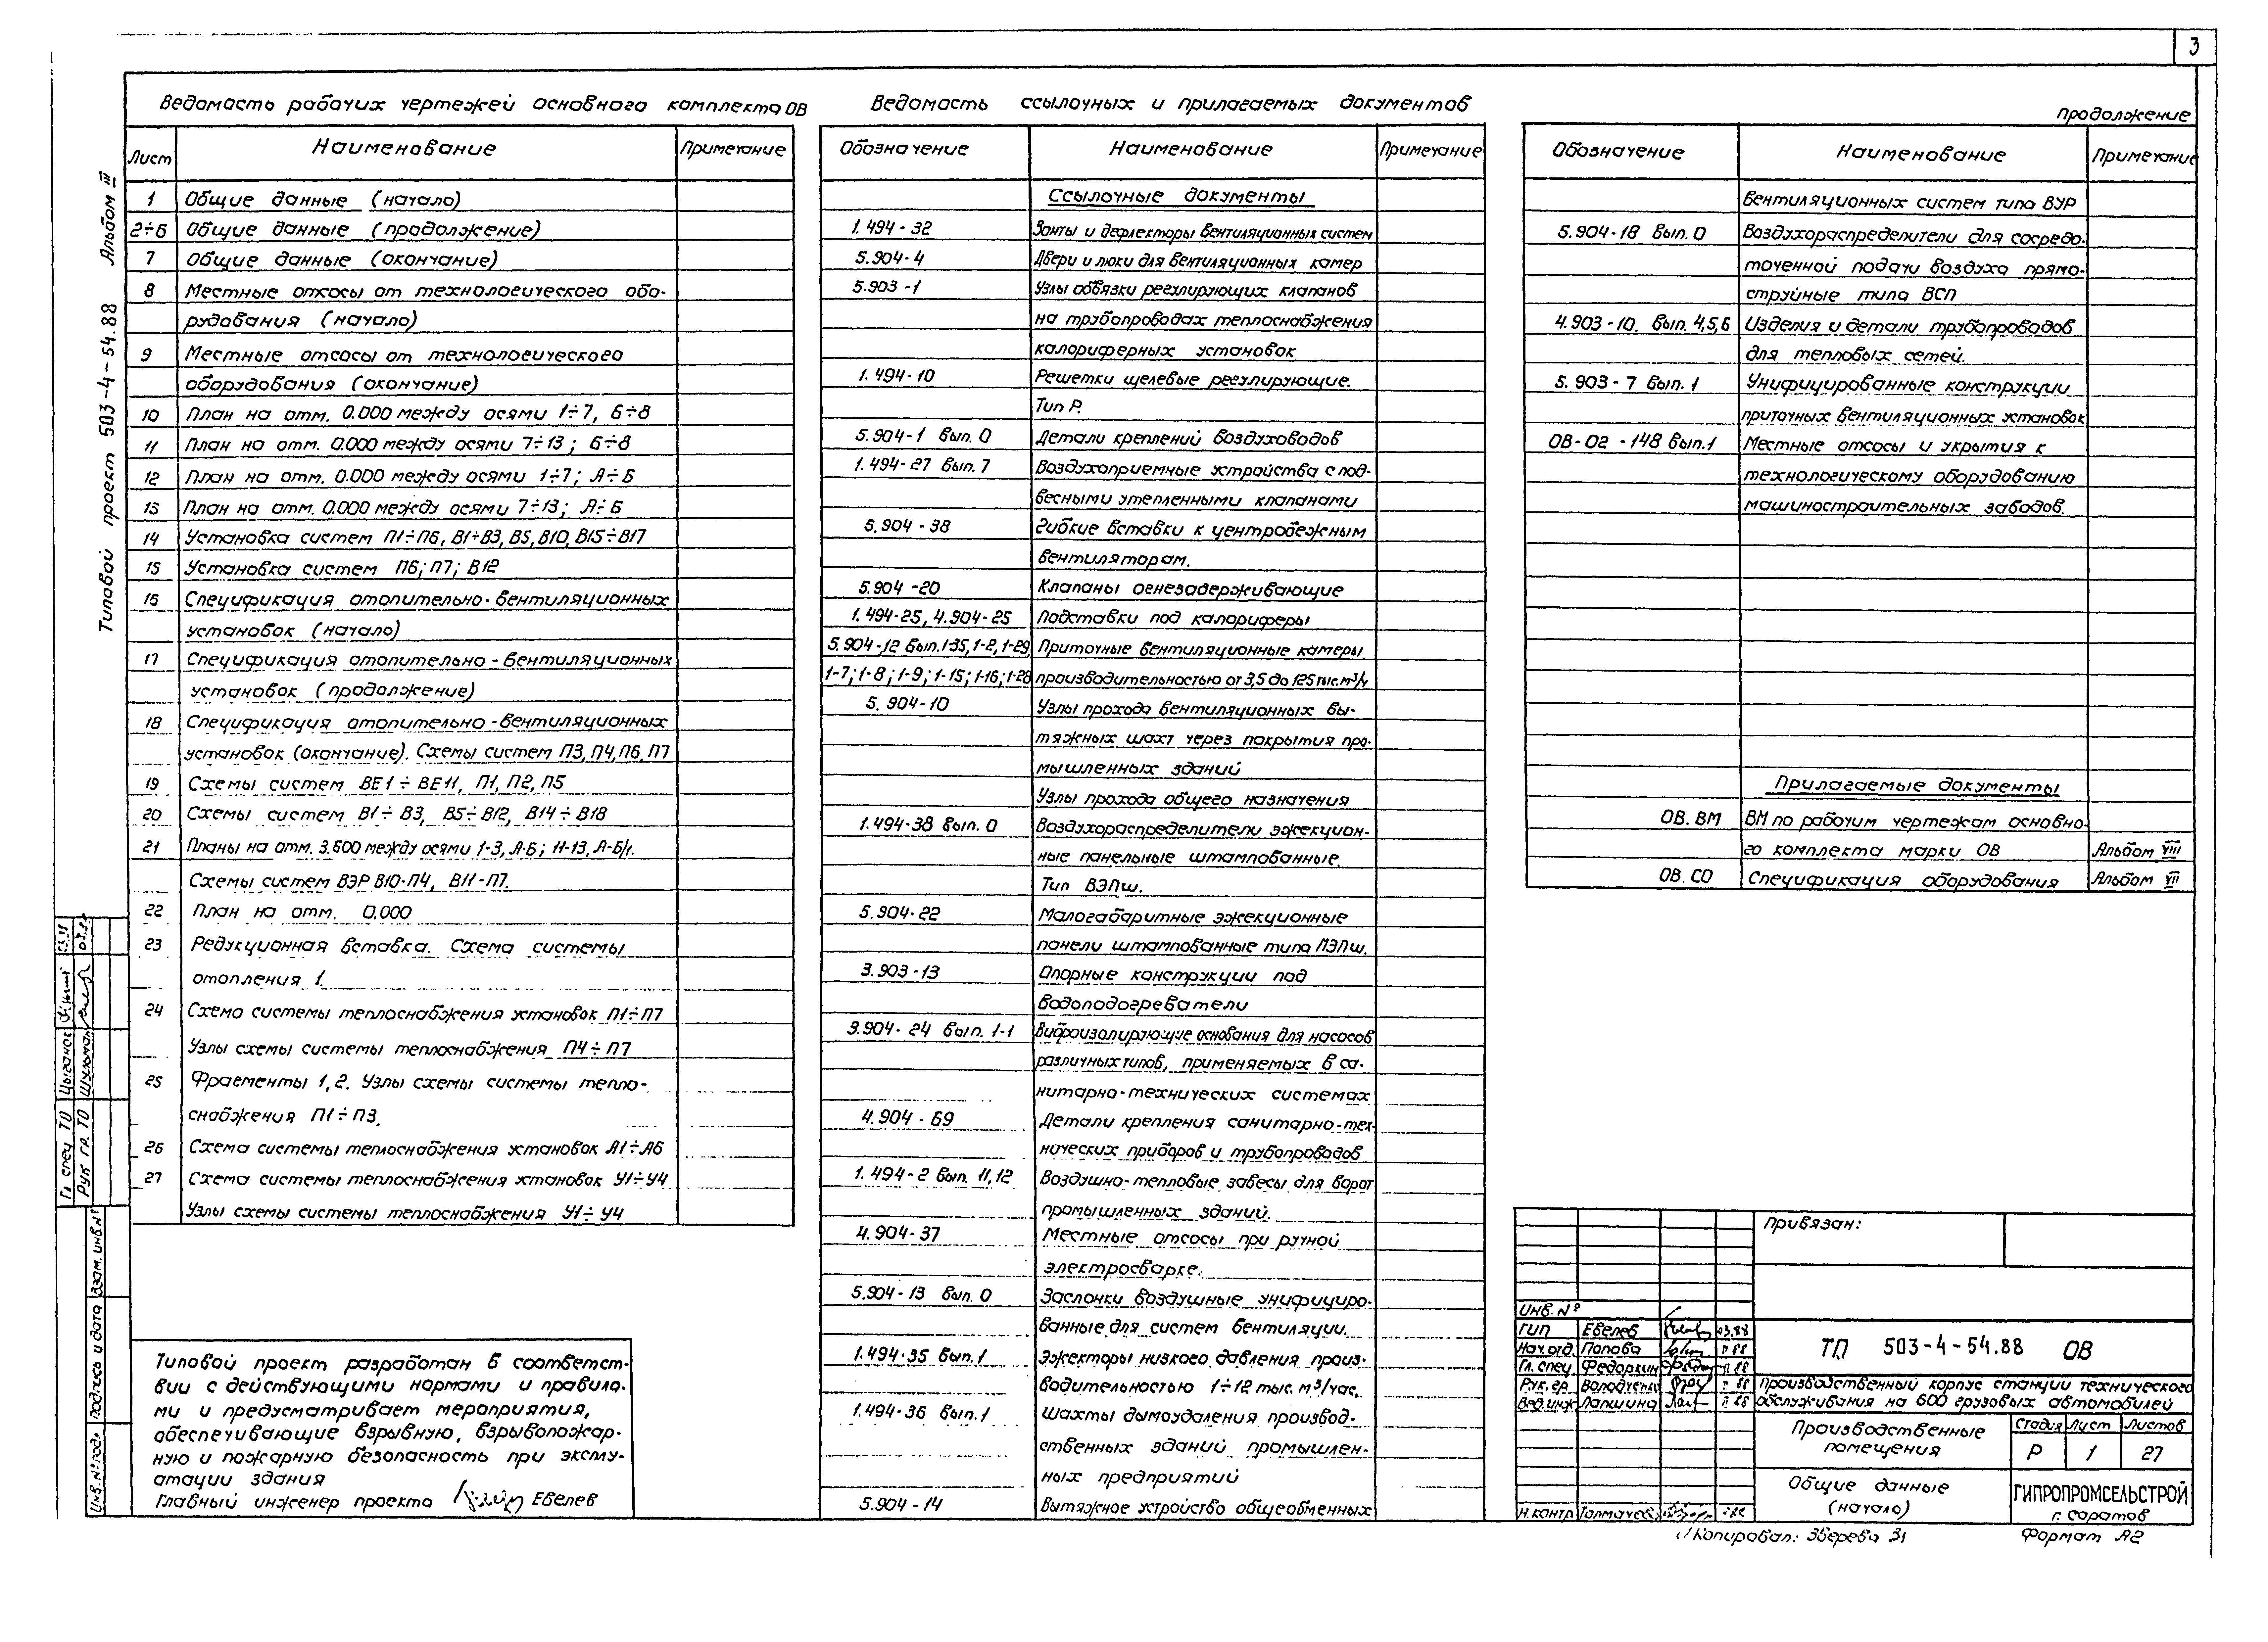 3
Ведомость рабочих чертежей основного комплекта ОВ
Лист Наименование Примечание
1 Общие данные (начало)
2÷6 Общие данные (продолжение)
7 Общие данные (окончание)
8 Местные отсосы от технологического обо-
рудования (начало)
9 Местные отсосы от технологического
оборудования (окончание)
10 План на отм. 0.000 между осями 1÷7, Б÷В
11 План на отм. 0.000 между осями 7÷13; Б÷В
12 План на отм. 0.000 между осями 1÷7; А÷Б
13 План на отм. 0.000 между осями 7÷13; А÷Б
14 Установка систем П1÷П6, В1÷В3, В5, В10, В15÷В17
15 Установка систем П6; П7; В12
16 Спецификация отопительно-вентиляционных
установок (начало)
17 Спецификация отопительно-вентиляционных
установок (продолжение)
18 Спецификация отопительно-вентиляционных
установок (окончание). Схемы систем П3, П4, П6, П7
19 Схемы систем ВЕ1÷ВЕ11, П1, П2, П5
20 Схемы систем В1÷В3, В5÷В12, В14÷В18
21 Планы на отм. 3.600 между осями 1-3, А-Б; 11-13, А-Б/1.
Схемы систем ВЭР В10-П4, В11-П7.
22 План на отм. 0.000
23 Редукционная вставка. Схема системы
отопления 1.
24 Схема системы теплоснабжения установок П1÷П7
Узлы схемы системы теплоснабжения П4÷П7
25 Фрагменты 1, 2. Узлы схемы системы тепло-
снабжения П1÷П3.
26 Схема системы теплоснабжения установок А1÷А6
27 Схема системы теплоснабжения установок У1÷У4
Узлы схемы системы теплоснабжения У1÷У4
Типовой проект разработан в соответст-
вии с действующими нормами и правила-
ми и предусматривает мероприятия,
обеспечивающие взрывную, взрывопожар-
ную и пожарную безопасность при эксплу-
атации здания
Главный инженер проекта Евелев
Ведомость ссылочных и прилагаемых документов
Обозначение Наименование Примечание
Ссылочные документы
1.494-32 Зонты и дефлекторы вентиляционных систем
5.904-4 Двери и люки для вентиляционных камер
5.903-1 Узлы обвязки регулирующих клапанов
на трубопроводах теплоснабжения
калориферных установок
1.494-10 Решетки щелевые регулирующие.
Тип Р.
5.904-1 вып. 0 Детали креплений воздуховодов
1.494-27 вып. 7 Воздухоприемные устройства с под-
весными утепленными клапанами
5.904-38 Гибкие вставки к центробежным
вентиляторам.
5.904-20 Клапаны огнезадерживающие
1.494-25, 4.904-25 Подставки под калориферы
5.904-12 вып. 1-35, 1-2, 1-29, Приточные вентиляционные камеры
1-7; 1-8; 1-9; 1-15; 1-16; 1-28 производительностью от 3,5 до 125 тыс. м³/ч
5.904-10 Узлы прохода вентиляционных вы-
тяжных шахт через покрытия про-
мышленных зданий
Узлы прохода общего назначения
1.494-38 вып. 0 Воздухораспределители эжекцион-
ные панельные штампованные.
Тип ВЭПш.
5.904-22 Малогабаритные эжекционные
панели штампованные типа МЭПш.
3.903-13 Опорные конструкции под
водоподогреватели
3.904-24 вып. 1-1 Виброизолирующие основания для насосов
различных типов, применяемых в са-
нитарно-технических системах
4.904-69 Детали крепления санитарно-тех-
нических приборов и трубопроводов
1.494-2 вып. 11,12 Воздушно-тепловые завесы для ворот
промышленных зданий.
4.904-37 Местные отсосы при ручной
электросварке.
5.904-13 вып. 0 Заслонки воздушные унифициро-
ванные для систем вентиляции.
1.494-35 вып. 1 Эжекторы низкого давления произ-
водительностью 1÷12 тыс. м³/час.
1.494-36 вып. 1 Шахты дымоудаления производ-
ственных зданий промышлен-
ных предприятий
5.904-14 Вытяжное устройство общеобменных
продолжение
Обозначение Наименование Примечание
вентиляционных систем типа ВУР
5.904-18 вып. 0 Воздухораспределители для сосредо-
точенной подачи воздуха прямо-
струйные типа ВСП
4.903-10. вып. 4,5,6 Изделия и детали трубопроводов
для тепловых сетей.
5.903-7 вып. 1 Унифицированные конструкции
приточных вентиляционных установок
ОВ-02-148 вып. 1 Местные отсосы и укрытия к
технологическому оборудованию
машиностроительных заводов.
Прилагаемые документы
ОВ. ВМ ВМ по рабочим чертежам основно-
го комплекта марки ОВ Альбом VIII
ОВ. СО Спецификация оборудования Альбом VII
Привязан:
Инв. №
ГИП Евелев 03.88
Нач. отд. Попова
Гл. спец. Федоркин
Рук. гр. Володченко
Вед. инж. Лапшина
Н. контр. Толмачева
ТП 503-4-54.88 ОВ
Производственный корпус станции технического
обслуживания на 600 грузовых автомобилей
Производственные
помещения
Стадия Лист Листов
Р 1 27
Общие данные
(начало)
ГИПРОПРОМСЕЛЬСТРОЙ
г. Саратов
Копировал: Зверева
Формат А2
Типовой проект 503-4-54.88 Альбом III
Гл. спец. ТО Цыганок
Рук. гр. ТО Шульман
Инв. № подл. Подпись и дата Взам. инв. №